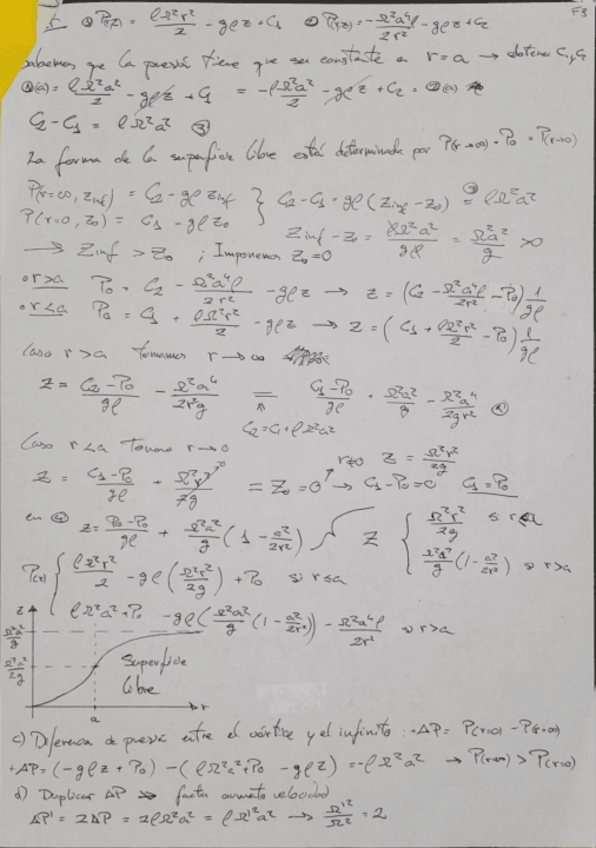 F3
① P(r,z) = ρΩ²r²/2 - gρz + C₁ ② P(r,z) = -Ω²a⁴ρ/2r² - gρz + C₂
Sabemos que la presión tiene que ser constante en r=a → obtener C₁ y C₂
①(a) = ρΩ²a²/2 - gρz + C₁ = -ρΩ²a²/2 - gρz + C₂ = ②(a)
C₂ - C₁ = ρΩ²a² ③
La forma de la superficie libre está determinada por P(r→∞) = P₀ = P(r→0)
P(r=∞, z_inf) = C₂ - gρ z_inf
P(r=0, z₀) = C₁ - gρ z₀ } C₂ - C₁ = gρ(z_inf - z₀) =③ ρΩ²a²
z_inf - z₀ = ρΩ²a²/gρ = Ω²a²/g > 0
→ z_inf > z₀ ; Imponemos z₀=0
• r>a P₀ = C₂ - Ω²a⁴ρ/2r² - gρz → z = (C₂ - Ω²a⁴ρ/2r² - P₀) 1/gρ
• r<a P₀ = C₁ + ρΩ²r²/2 - gρz → z = (C₁ + ρΩ²r²/2 - P₀) 1/gρ
Caso r>a tomamos r→∞
z = C₂-P₀/gρ - Ω²a⁴/2r²g = C₁-P₀/gρ + Ω²a²/g - Ω²a⁴/2gr² ④
↑
C₂=C₁+ρΩ²a²
Caso r<a tomamos r→0
r≠0 z = Ω²r²/2g
z = C₁-P₀/gρ + Ω²r²/2g = z₀ = 0 → C₁-P₀=0 C₁=P₀
en ④ z = P₀-P₀/gρ + Ω²a²/g (1 - a²/2r²) z { Ω²r²/2g si r≤a
Ω²a²/g (1 - a²/2r²) si r>a
P(r) { ρΩ²r²/2 - gρ(Ω²r²/2g) + P₀ si r≤a
ρΩ²a² + P₀ - gρ(Ω²a²/g (1 - a²/2r²)) - Ω²a⁴ρ/2r² si r>a
z
Ω²a²/g
Ω²a²/2g
Superficie
libre
a
r
c) Diferencia de presión entre el vórtice y el infinito: +ΔP = P(r=0) - P(r=∞)
+ΔP = (-gρz + P₀) - (ρΩ²a² + P₀ - gρz) = -ρΩ²a² → P(r=∞) > P(r=0)
d) Duplicar ΔP → factor aumento velocidad
ΔP' = 2ΔP = 2ρΩ²a² = ρΩ'²a² → Ω'²/Ω² = 2